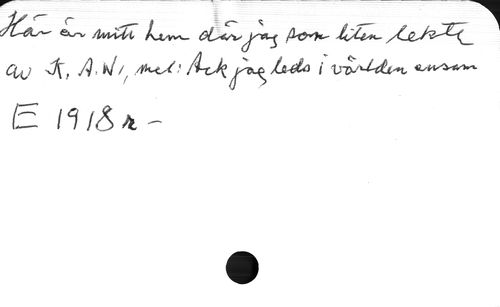 Här är mitt hem där jag som liten lekte
av K. A. W., mel: Ack jag leds i världen ensam
E 1918 r –